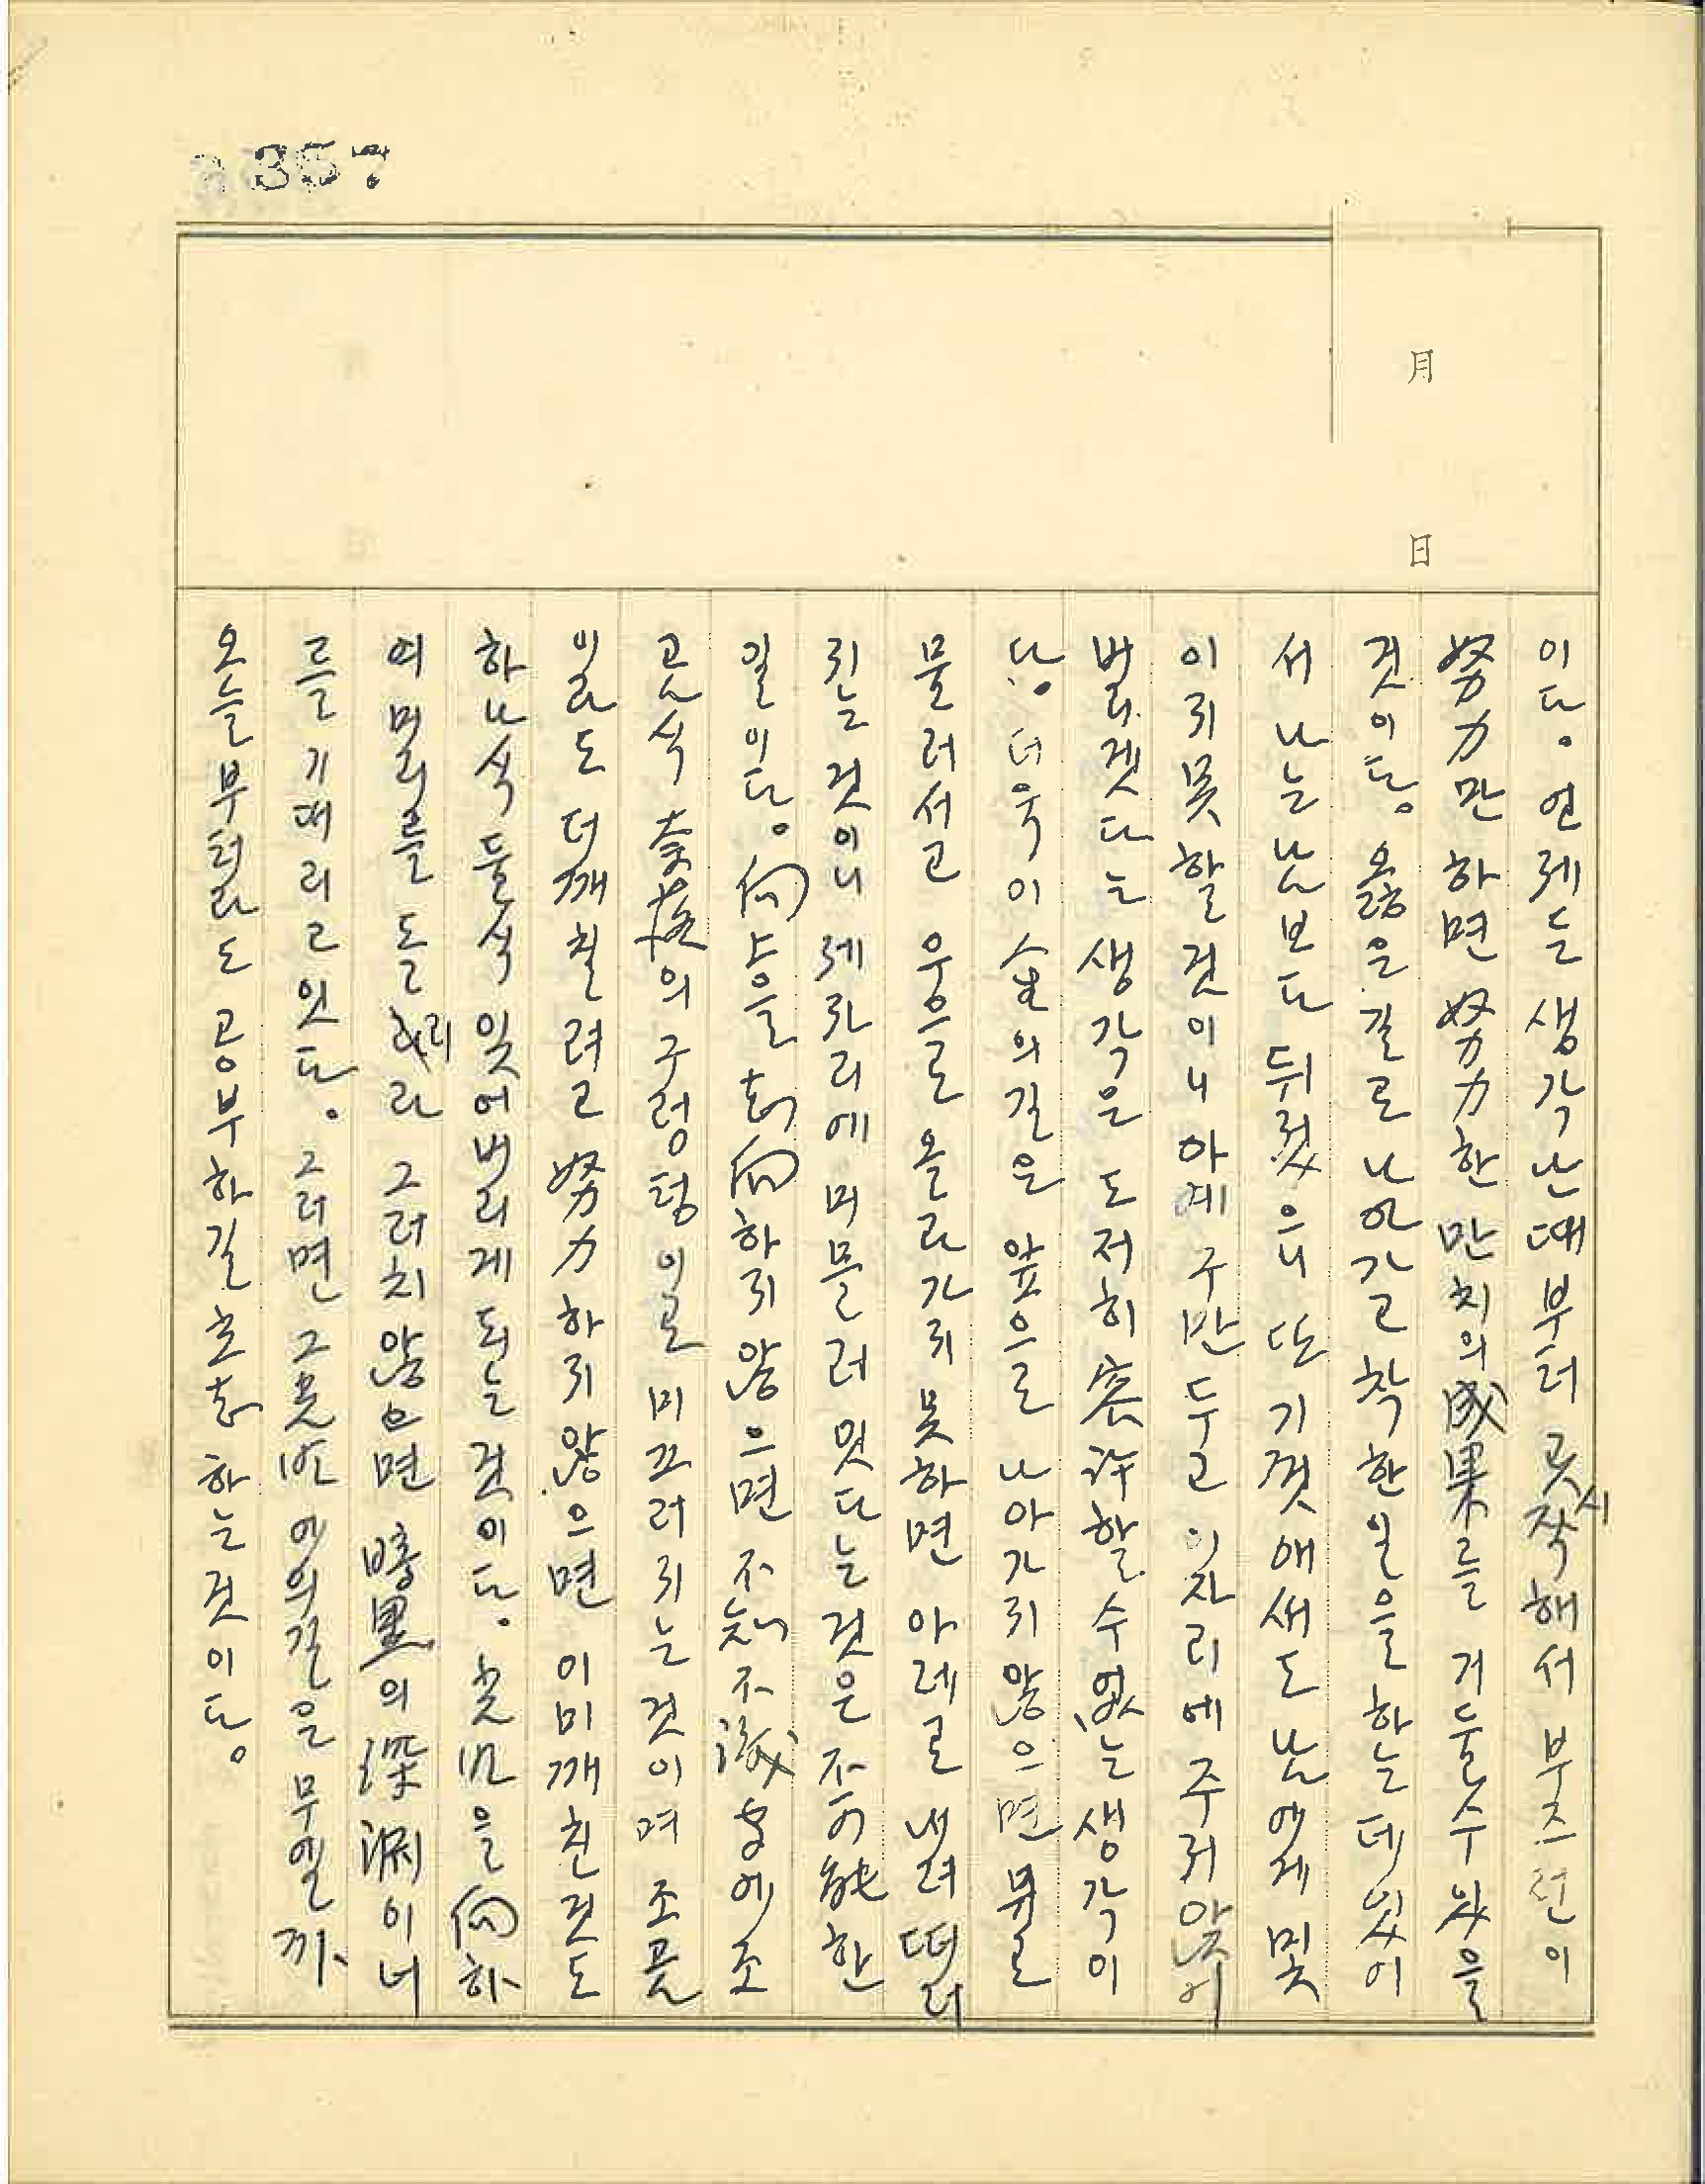 357
月
日
이다. 언제든 생각난 때부터 곳 시작해서 부즈런이
努力만 하면 努力한 만치의 成果를 거둘수 있을
것이다. 옳을은 길로 나아가고 착한일을 하는데 있어
서 나는 남보다 뒤젔으니 또 기껏애써도 남에게 밋
이지 못할 것이니 아예 구만 두고 이자리에 주저앉어
버리겟다는 생각은 도저히 容許할 수 없는 생각이
다. 더욱이 人生의 길은 앞으로 나아가지 않으면 뒤로
물러서고 우으로 올라가지 못하면 아레로 내려 떠러
지는 것이니 제자리에 머물러 있다는 것은 不可能한
일이다. 向上을 志向하지 않으면 不知不識 中에 조
곰식 奈落의 구렁텅이로 미끄러지는 것이며 조곰
이라도 더 깨칠려고 努力하지 않으면 이미 깨친것도
하나식 둘식 잊어버리게 되는 것이다. 光明을 向하
여 머리를 돌리라 그러치 않으면 暗黑의 深淵이 너
를 기대리고 있다. 그러면 그 光明에의 길은 무엘까
오늘부터라도 공부하길 호소하는 것이다.